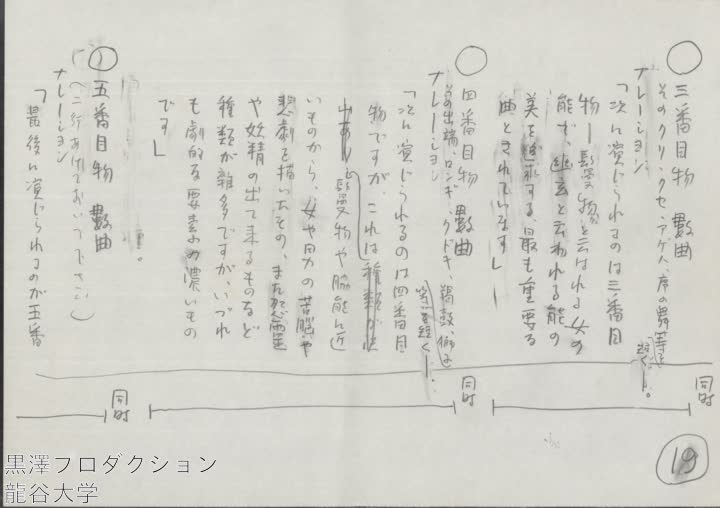 三番目物 数曲
そのクリ、クセ、アゲハ、序の舞等を
短く―。
ナレーション
「次に演じられるのは三番目
物―鬘物と云はれる女の
能で、幽玄と云われる能の
美を追求する、最も重要な
曲とされています」
四番目物 数曲
その出端、ロンギ、クドキ、羯鼓、
短く―。
ナレーション
「次に演じられるのは四番目
物ですが、これは種類が
鬘物や脇能に近
いものから、女や男の苦悩や
悲劇を描いたもの、また死霊
や妖精の出て来るものなど
種類が雑多ですが、いづれ
も劇的な要素の濃いもの
です」
五番目物 数曲
(二行あけておいて下さい)
ナレーション
「最後に演じられるのが五番
同時
同時
同時
19
黒澤プロダクション
龍谷大学